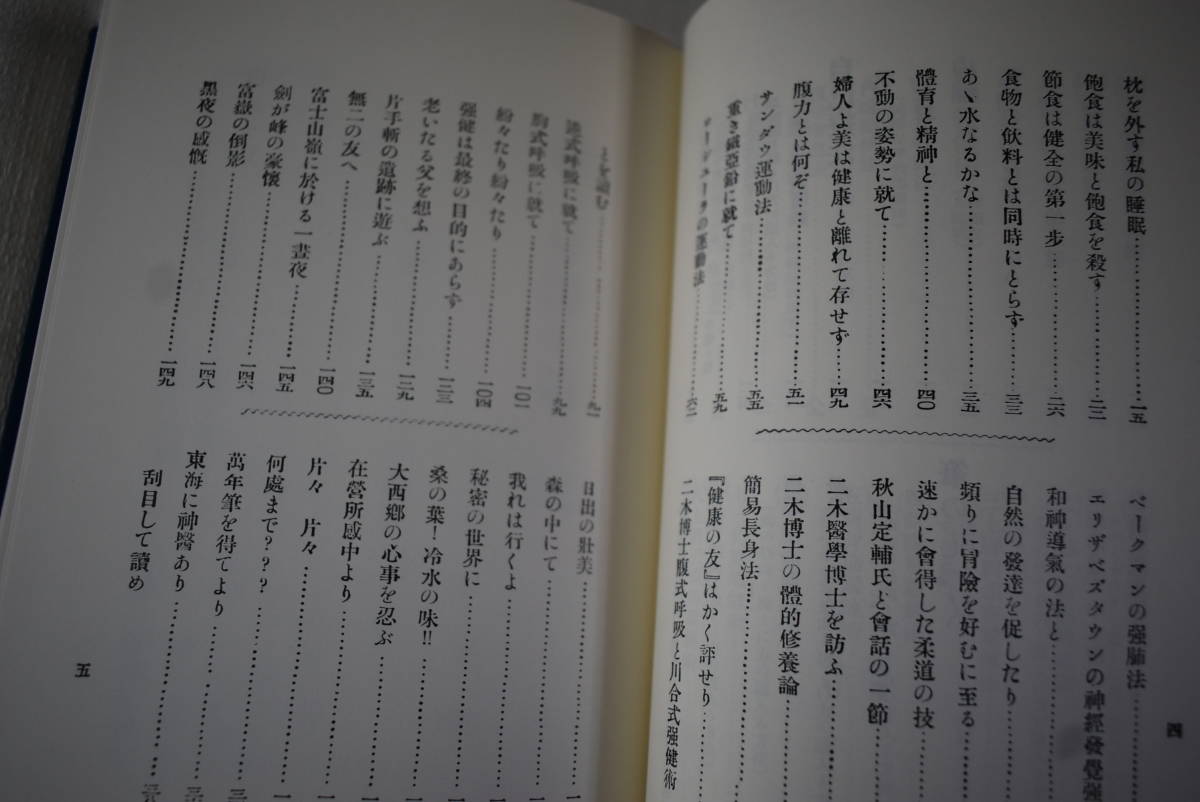 枕を外す私の睡眠…………一五
飽食は美味と飽食を殺す…………二二
節食は健全の第一步…………二六
食物と飮料とは同時にとらず…………三三
あゝ水なるかな…………三五
體育と精神と…………四〇
不動の姿勢に就て…………四六
婦人よ美は健康と離れて存せず…………四九
腹力とは何ぞ…………五一
サンダウ運動法…………五五
重き鐵亞鈴に就て…………五九
の運動法…………六二
ベークマンの强肺法…………
エリザベズタウンの神經發覺强
和神導氣の法と…………
自然の發達を促したり…………
頻りに冒險を好むに至る…………
速かに會得した柔道の技…………
秋山定輔氏と會話の一節…………
二木醫學博士を訪ふ…………
二木博士の體的修養論…………
簡易長身法…………
『健康の友』はかく評せり…………
二木博士腹式呼吸と川合式强健術
四
を讀む…………九一
逆式呼吸に就て…………九九
胸式呼吸に就て…………一〇一
紛々たり紛々たり…………一〇四
强健は最終の目的にあらず…………一二三
老いたる父を想ふ…………一二九
片手斬の遺跡に遊ぶ…………一三五
無二の友へ…………一四〇
富士山嶺に於ける一晝夜…………一四五
劍が峰の豪懷…………一四六
富嶽の倒影…………一四八
黑夜の感慨…………一四九
日出の壯美…………一
森の中にて…………一
我れは行くよ…………一
秘密の世界に…………一
桑の葉！冷水の味!!…………一
大西鄕の心事を忍ぶ…………一
在營所感中より…………一
片々 片々…………一
何處まで？？？…………一
萬年筆を得てより…………二
東海に神醫あり…………二
刮目して讀め…………二
五